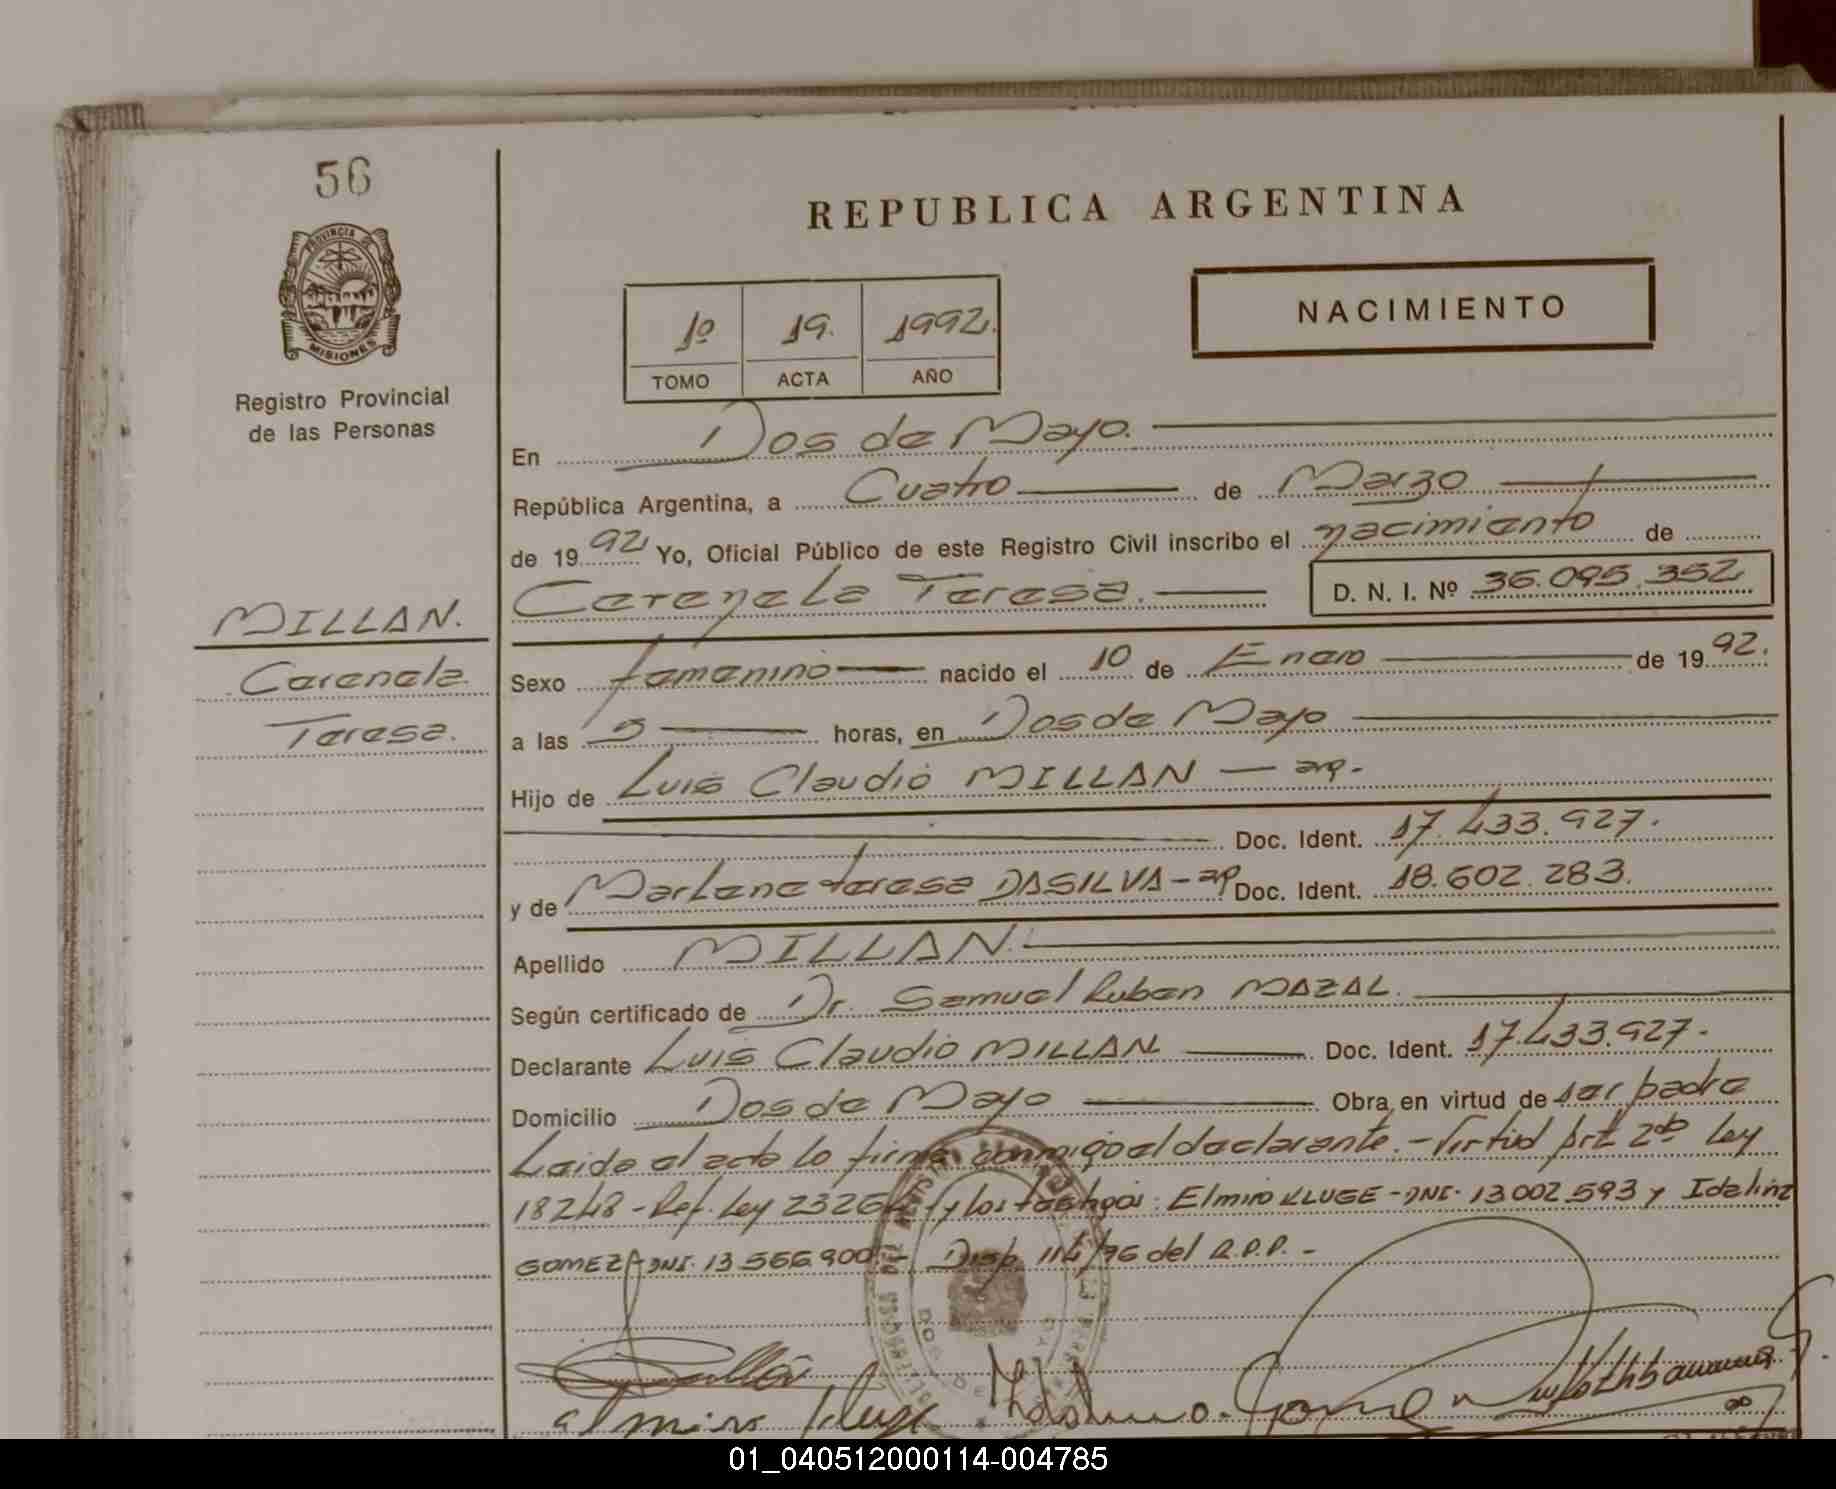 56
PROVINCIA DE
MISIONES
Registro Provincial
de las Personas
MILLAN.
Carenela
Teresa.
REPUBLICA ARGENTINA
1º 19. 1992.
TOMO ACTA AÑO
NACIMIENTO
En Dos de Mayo.
República Argentina, a Cuatro de Marzo
de 1992 Yo, Oficial Público de este Registro Civil inscribo el nacimiento de
Carenela Teresa. D. N. I. Nº 36.095.352
Sexo femenino nacido el 10 de Enero de 1992.
a las 5 horas, en Dos de Mayo
Hijo de Luis Claudio MILLAN - arg.
Doc. Ident. 17.433.927.
y de Marlene teresa DASILVA - Doc. Ident. 18.602.283.
Apellido MILLAN.
Según certificado de Dr. Samuel Ruben MAZAL.
Declarante Luis Claudio MILLAN Doc. Ident. 17.433.927.
Domicilio Dos de Mayo Obra en virtud de ser padre
Leida el acta lo firma conmigo el declarante. - Virtud Art 2do Ley
18248 - Ref. Ley 23264 y los testigos: Elmiro KLUGE - DNI. 13.002.593 y Idalina
GOMEZ - DNI. 13.566.900 - Disp. 114/96 del R.P.P. -
Elmiro Kluge
01_040512000114-004785